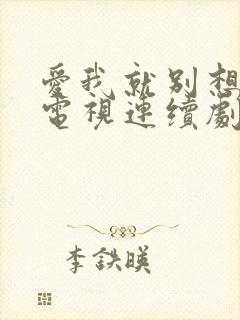 愛我就別想
電視連續劇
李鉄暎